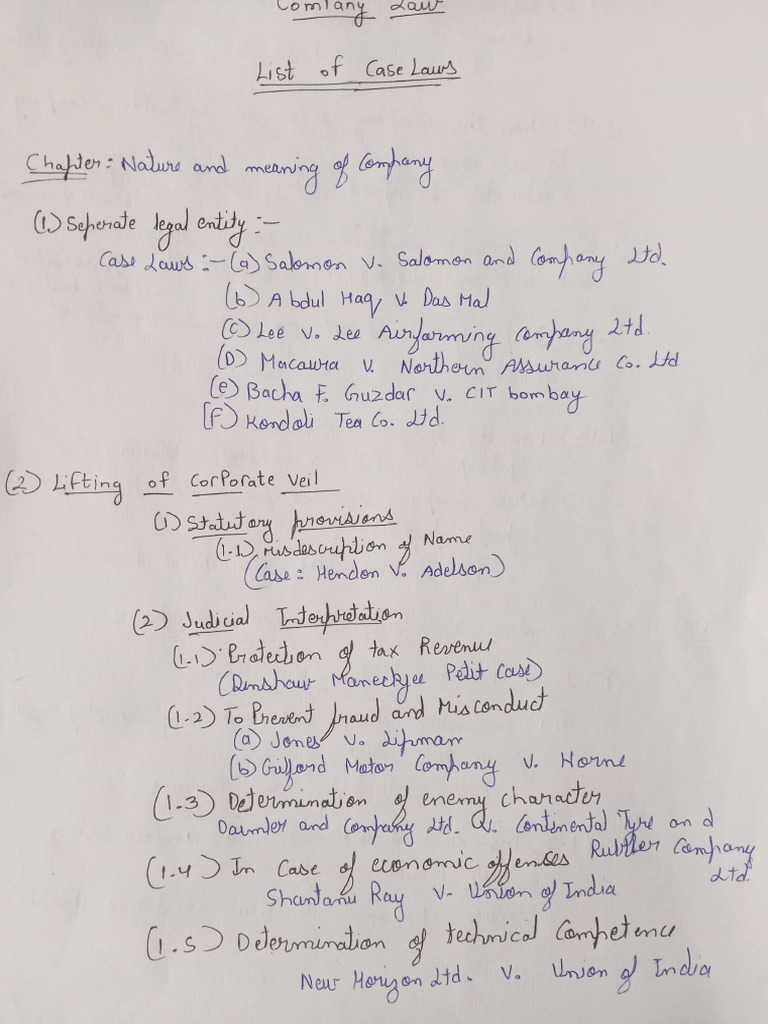 Company Law
List of Case Laws
Chapter: Nature and meaning of Company
(1) Seperate legal entity :-
Case Laws :- (a) Salomon v. Salomon and Company Ltd.
(b) Abdul Haq v. Das Mal
(C) Lee v. Lee Airfarming Company Ltd.
(D) Macaura v. Northern Assurance Co. Ltd
(e) Bacha F. Guzdar v. CIT bombay
(F) Kondoli Tea Co. Ltd.
(2) Lifting of Corporate veil
(1) Statutory provisions
(1.1) Misdescription of Name
(Case: Hendon v. Adelson)
(2) Judicial Interpretation
(1.1) Protection of tax Revenue
(Dinshaw Maneckjee Petit Case)
(1.2) To Prevent fraud and Misconduct
(a) Jones v. Lipman
(b) Gilford Motor Company v. Horne
(1.3) Determination of enemy character
Daimler and Company Ltd. v. Continental Tyre and
Rubber Company
Ltd.
(1.4) In Case of economic offenses
Shantanu Ray v. Union of India
(1.5) Determination of technical Competence
New Horizon Ltd. v. Union of India